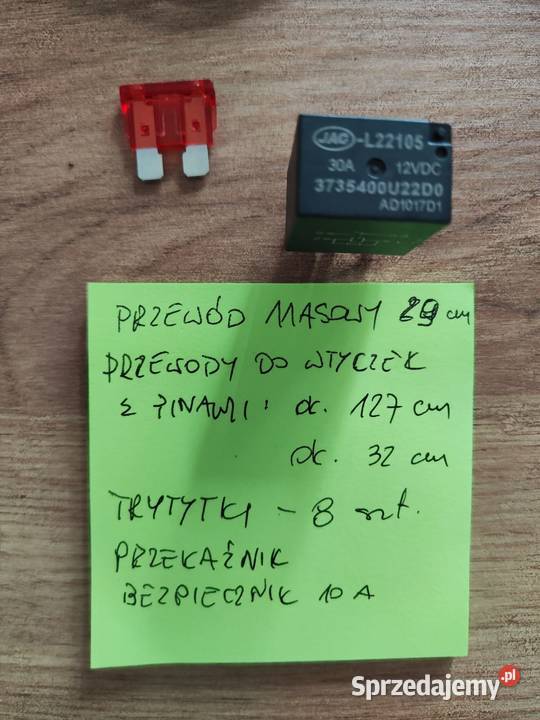 JAC -L22105
30A 12VDC
3735400U22D0
AD1017D1
PRZEWÓD MASOWY 29 cm
PRZEWODY DO WTYCZEK
Z PINAMI: ok. 127 cm
ok. 32 cm
TRYTYTKI - 8 szt.
PRZEKAŹNIK
BEZPIECZNIK 10 A
Sprzedajemy.pl